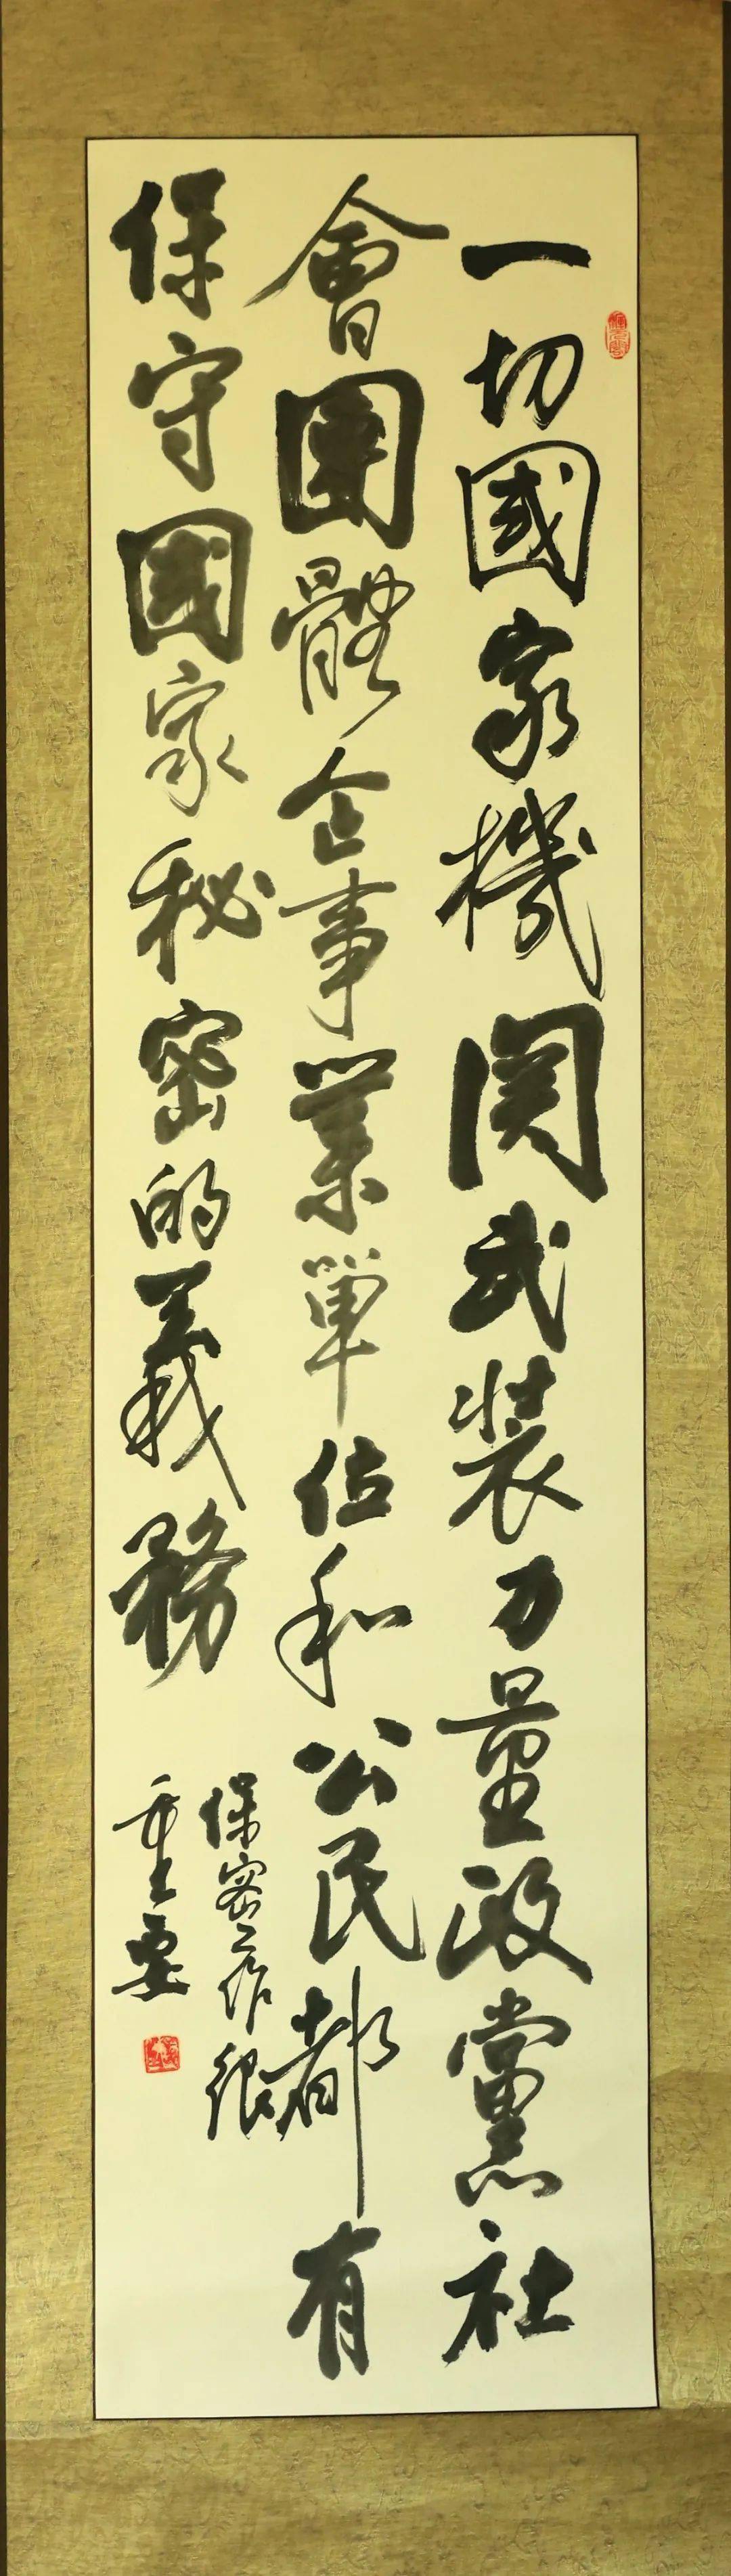 一切國家機関武装力量政黨社
會團體企事業單位和公民都有
保守國家秘密的義務
保密工作很
重要